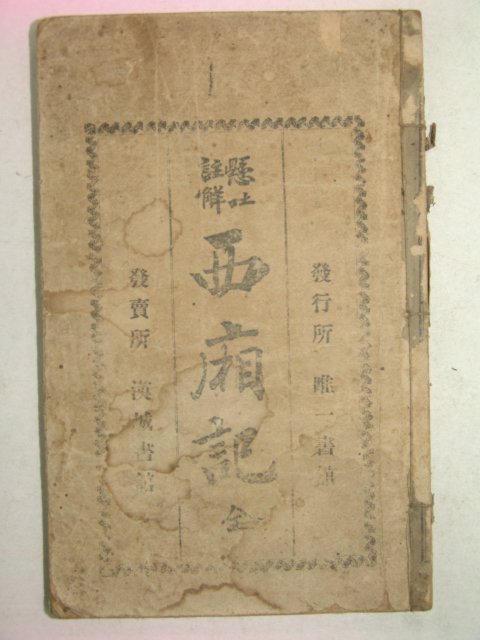 發行所 唯一書館
懸吐
註解
西廂記 全
發賣所 漢城書館